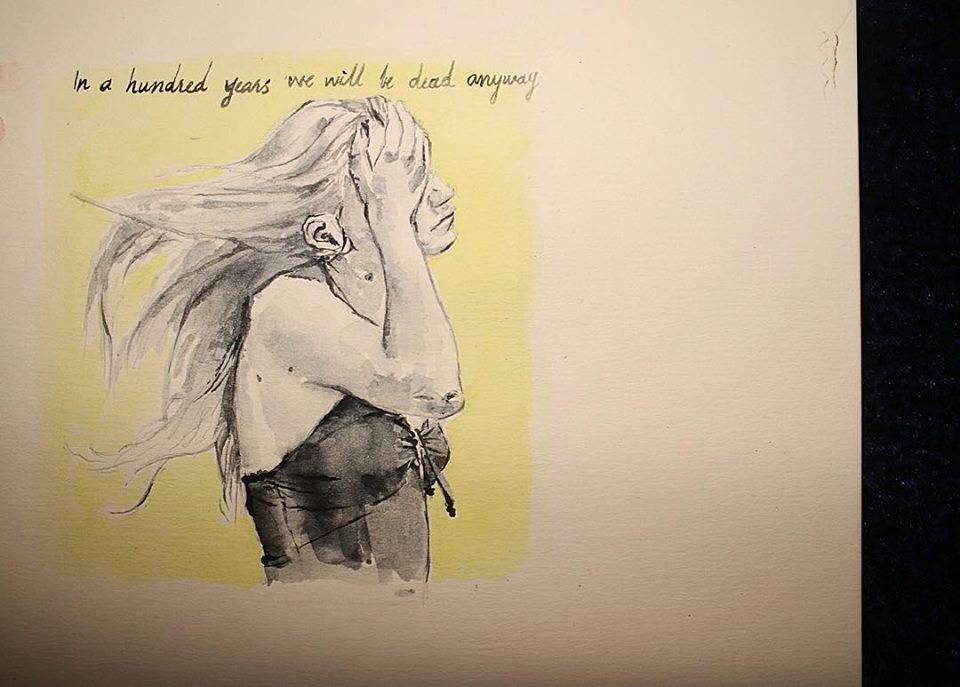 In a hundred years we will be dead anyway